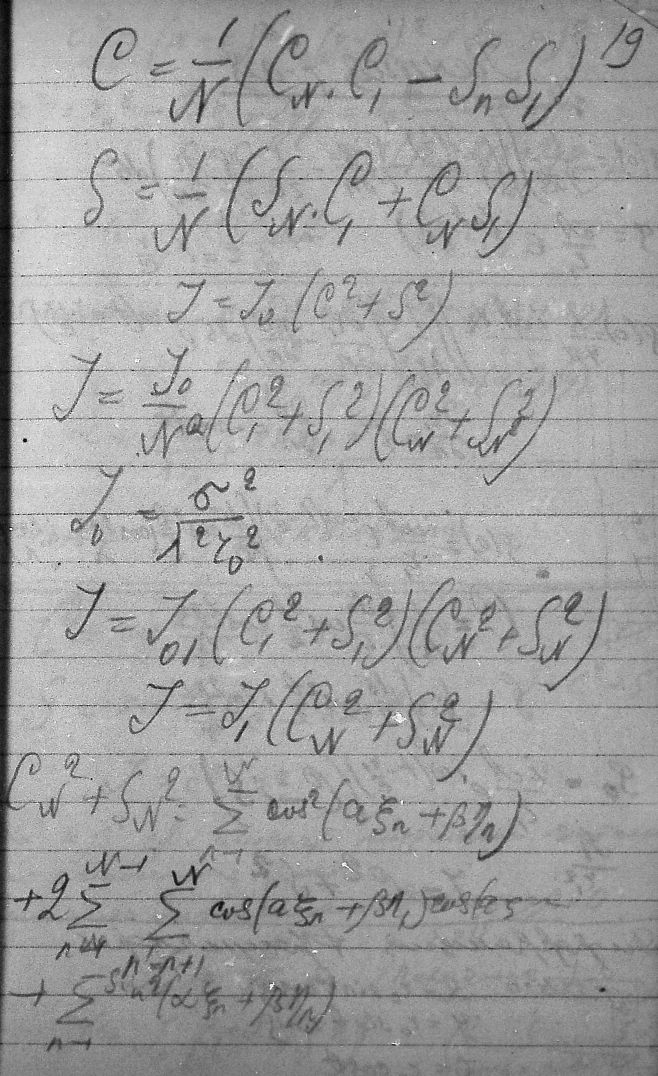 19
C = 1/N (C_N · C_1 − S_n S_1)
S = 1/N (S_N · C_1 + C_N S_1)
J = J_0 (C² + S²)
J = J_0/N² (C_1² + S_1²)(C_N² + S_N²)
J_0 = σ²/λ²r_0²
J = J_01 (C_1² + S_1²)(C_N² + S_N²)
J = J_1 (C_N² + S_N²)
C_N² + S_N² = ∑_{n=1}^{N} cos²(αξ_n + βη_n)
+ 2 ∑_{n=1}^{N−1} ∑_{n'=n+1}^{N} cos(αξ_n + βη_n) cos(αξ
+ ∑_{n=1} sin²(αξ_n + βη_n)